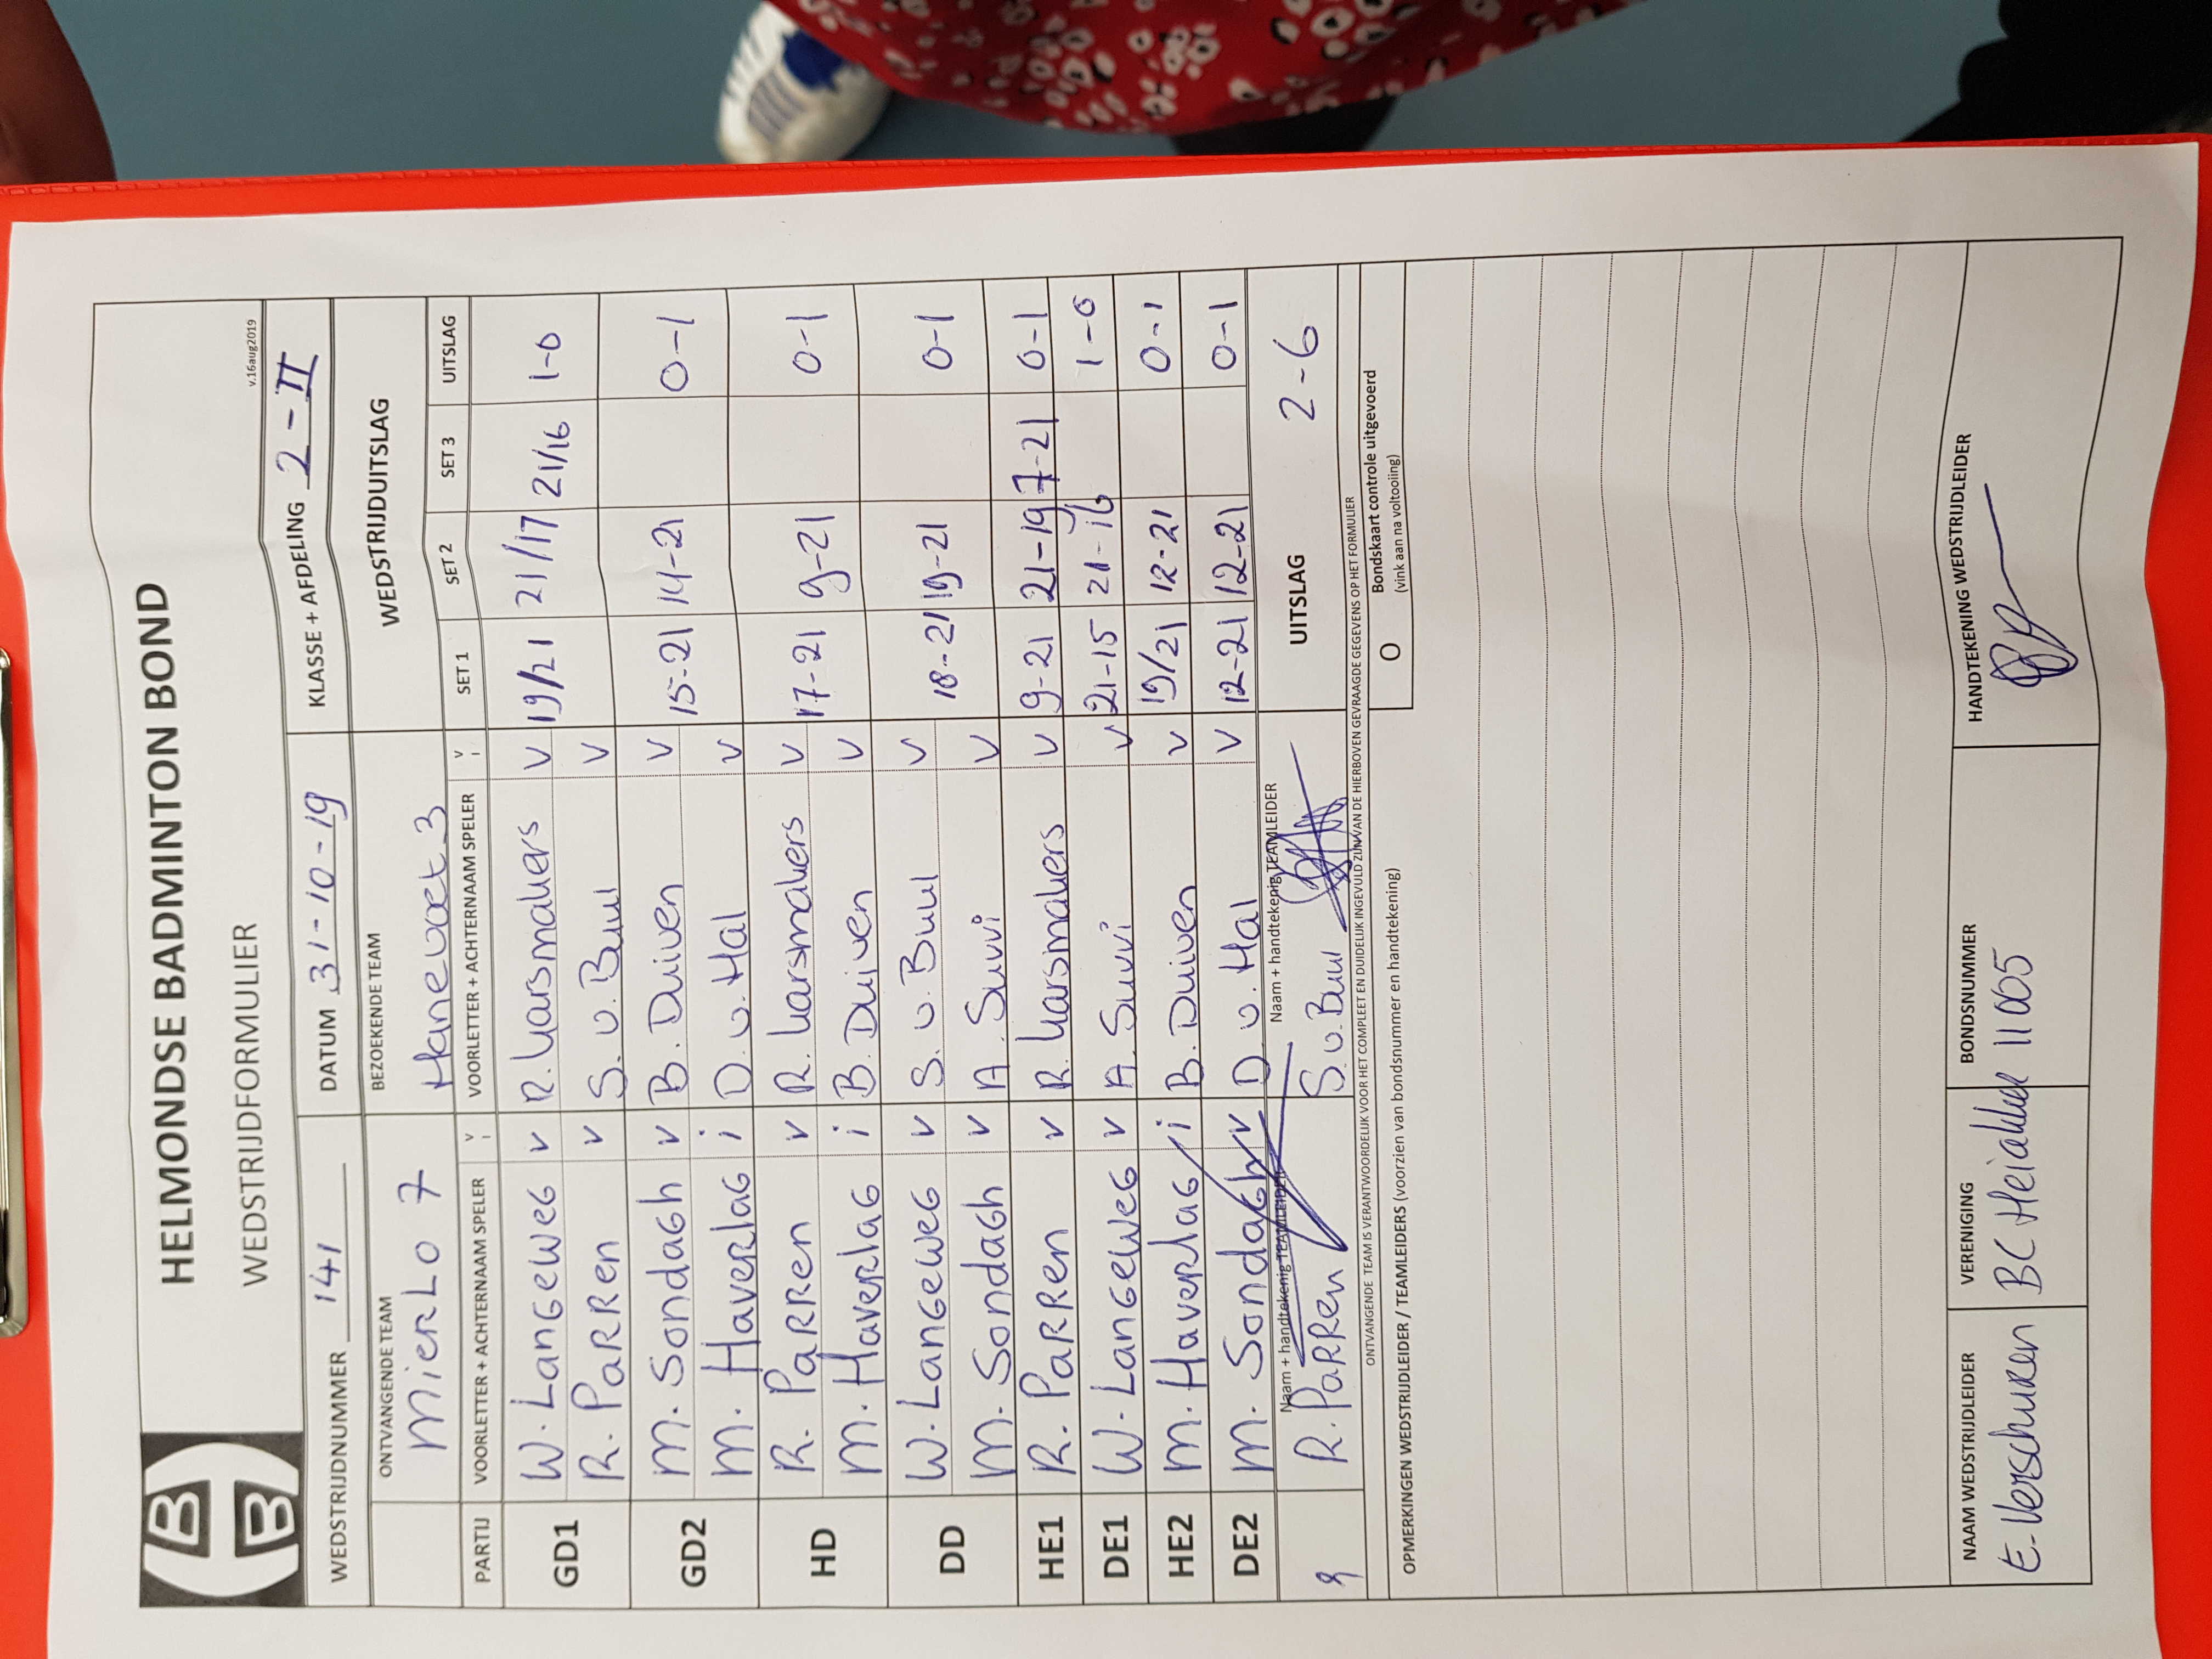 HELMONDSE BADMINTON BOND
WEDSTRIJDFORMULIER
v.16aug2019
WEDSTRIJDNUMMER 141 DATUM 31-10-19 KLASSE + AFDELING 2-II
ONTVANGENDE TEAM BEZOEKENDE TEAM WEDSTRIJDUITSLAG
MierLo 7 Hanevoet 3
PARTIJ VOORLETTER + ACHTERNAAM SPELER V I VOORLETTER + ACHTERNAAM SPELER V I SET 1 SET 2 SET 3 UITSLAG
GD1 W. LangeweG v R. Karsmakers V 19/21 21/17 21/16 1-0
R. PaRRen v S. v. Buul V
GD2 M. SondaGh v B. Duiven V 15-21 14-21 0-1
M. HaverlaG i D. v. Hal V
HD R. PaRRen v R. Karsmakers V 17-21 9-21 0-1
M. HaverlaG i B. Duiven V
DD W. LangeweG v S. v. Buul V 18-21 19-21 0-1
M. SondaGh v A. Suvvi V
HE1 R. PaRRen v R. Karsmakers V 9-21 21-19 7-21 0-1
DE1 W. LangeweG v A. Suvvi V 21-15 21-16 1-0
HE2 M. HaverlaG i B. Duiven V 19/21 12-21 0-1
DE2 M. SondaGh v D. v. Hal V 12-21 12-21 0-1
Naam + handtekenig TEAMLEIDER Naam + handtekenig TEAMLEIDER UITSLAG 2-6
R. PaRRen S. v. Buul
ONTVANGENDE TEAM IS VERANTWOORDELIJK VOOR HET COMPLEET EN DUIDELIJK INGEVULD ZIJN VAN DE HIERBOVEN GEVRAAGDE GEGEVENS OP HET FORMULIER
OPMERKINGEN WEDSTRIJDLEIDER / TEAMLEIDERS (voorzien van bondsnummer en handtekening) O Bondskaart controle uitgevoerd
(vink aan na voltooiing)
NAAM WEDSTRIJDLEIDER VERENIGING BONDSNUMMER HANDTEKENING WEDSTRIJDLEIDER
E. Verschuren BC Heiakker 11005